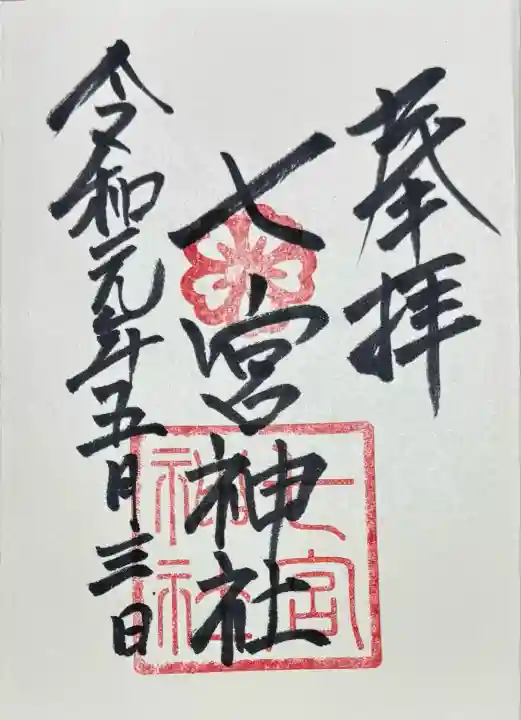 奉拝
七宮神社
七宮
神社
令和元年五月三日